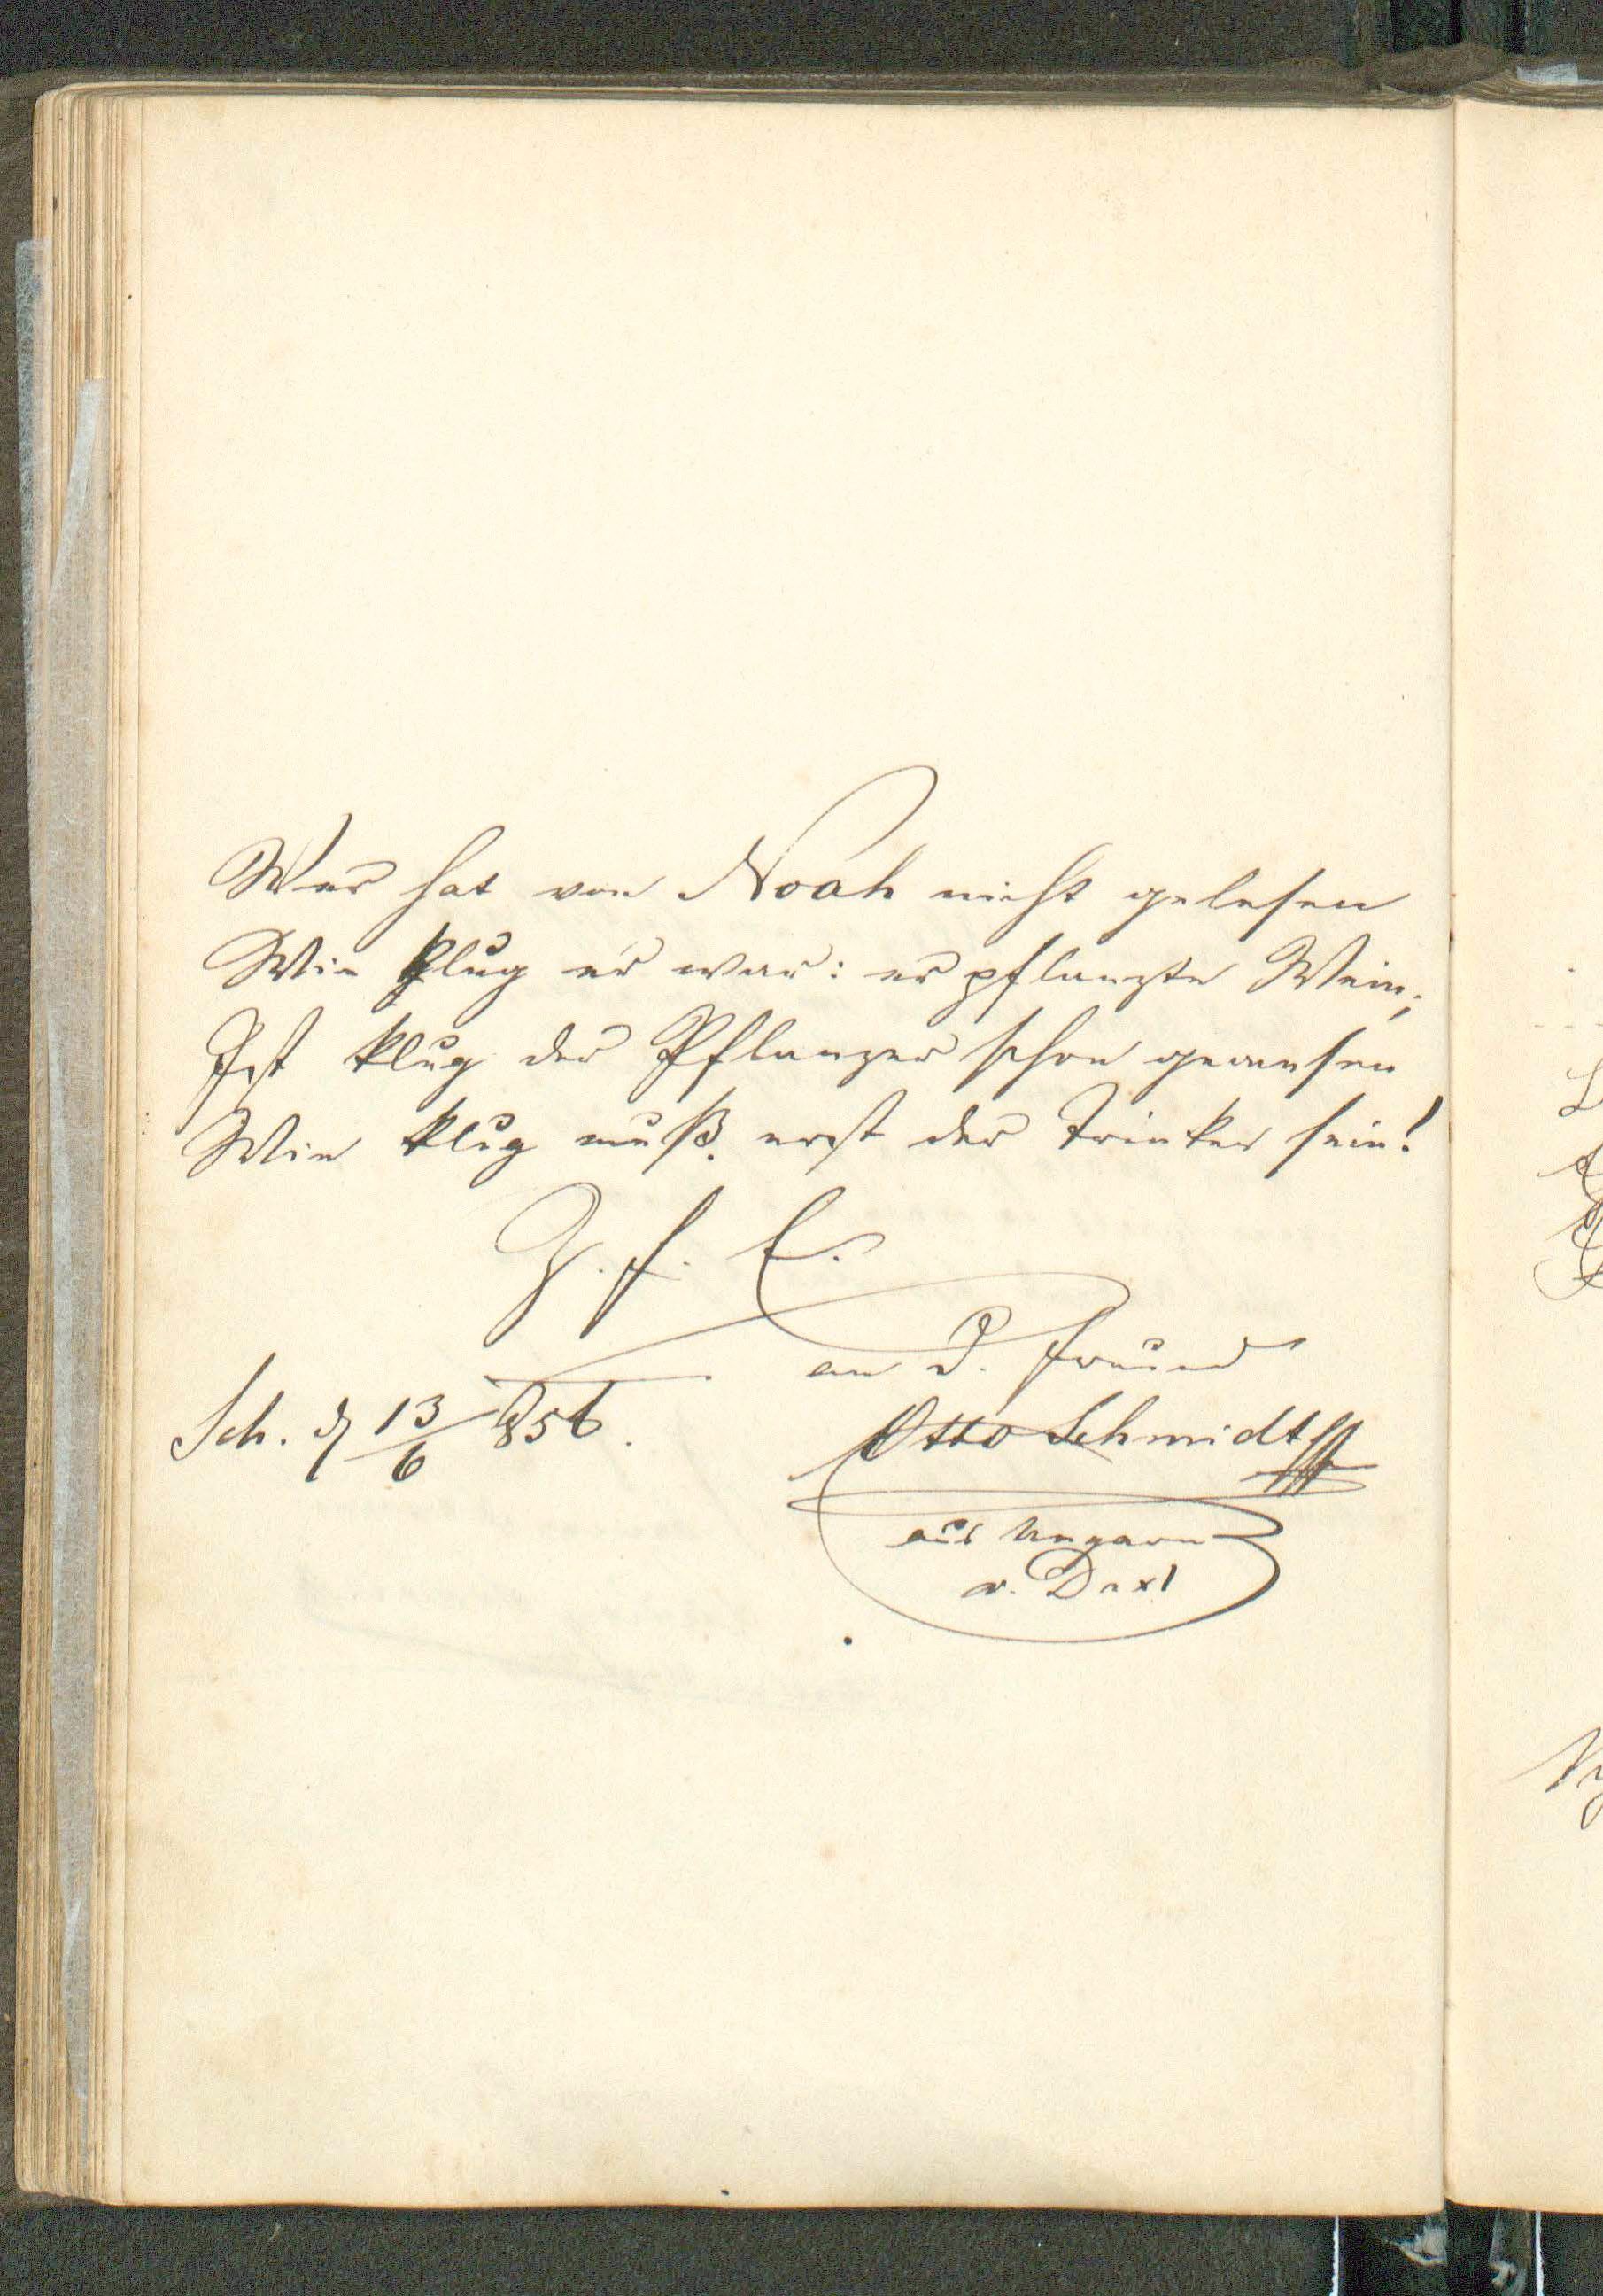 Wer hat von Noah nicht gelesen
Wie klug er war: er pflanzte Wein;
Ist klug der Pflanzer schon gewesen
Wie klug muß erst der Trinker sein!
Z. f. E.
an D. Freund
Otto Schmidt
aus Ungarn
Sch. d 13/6 856.